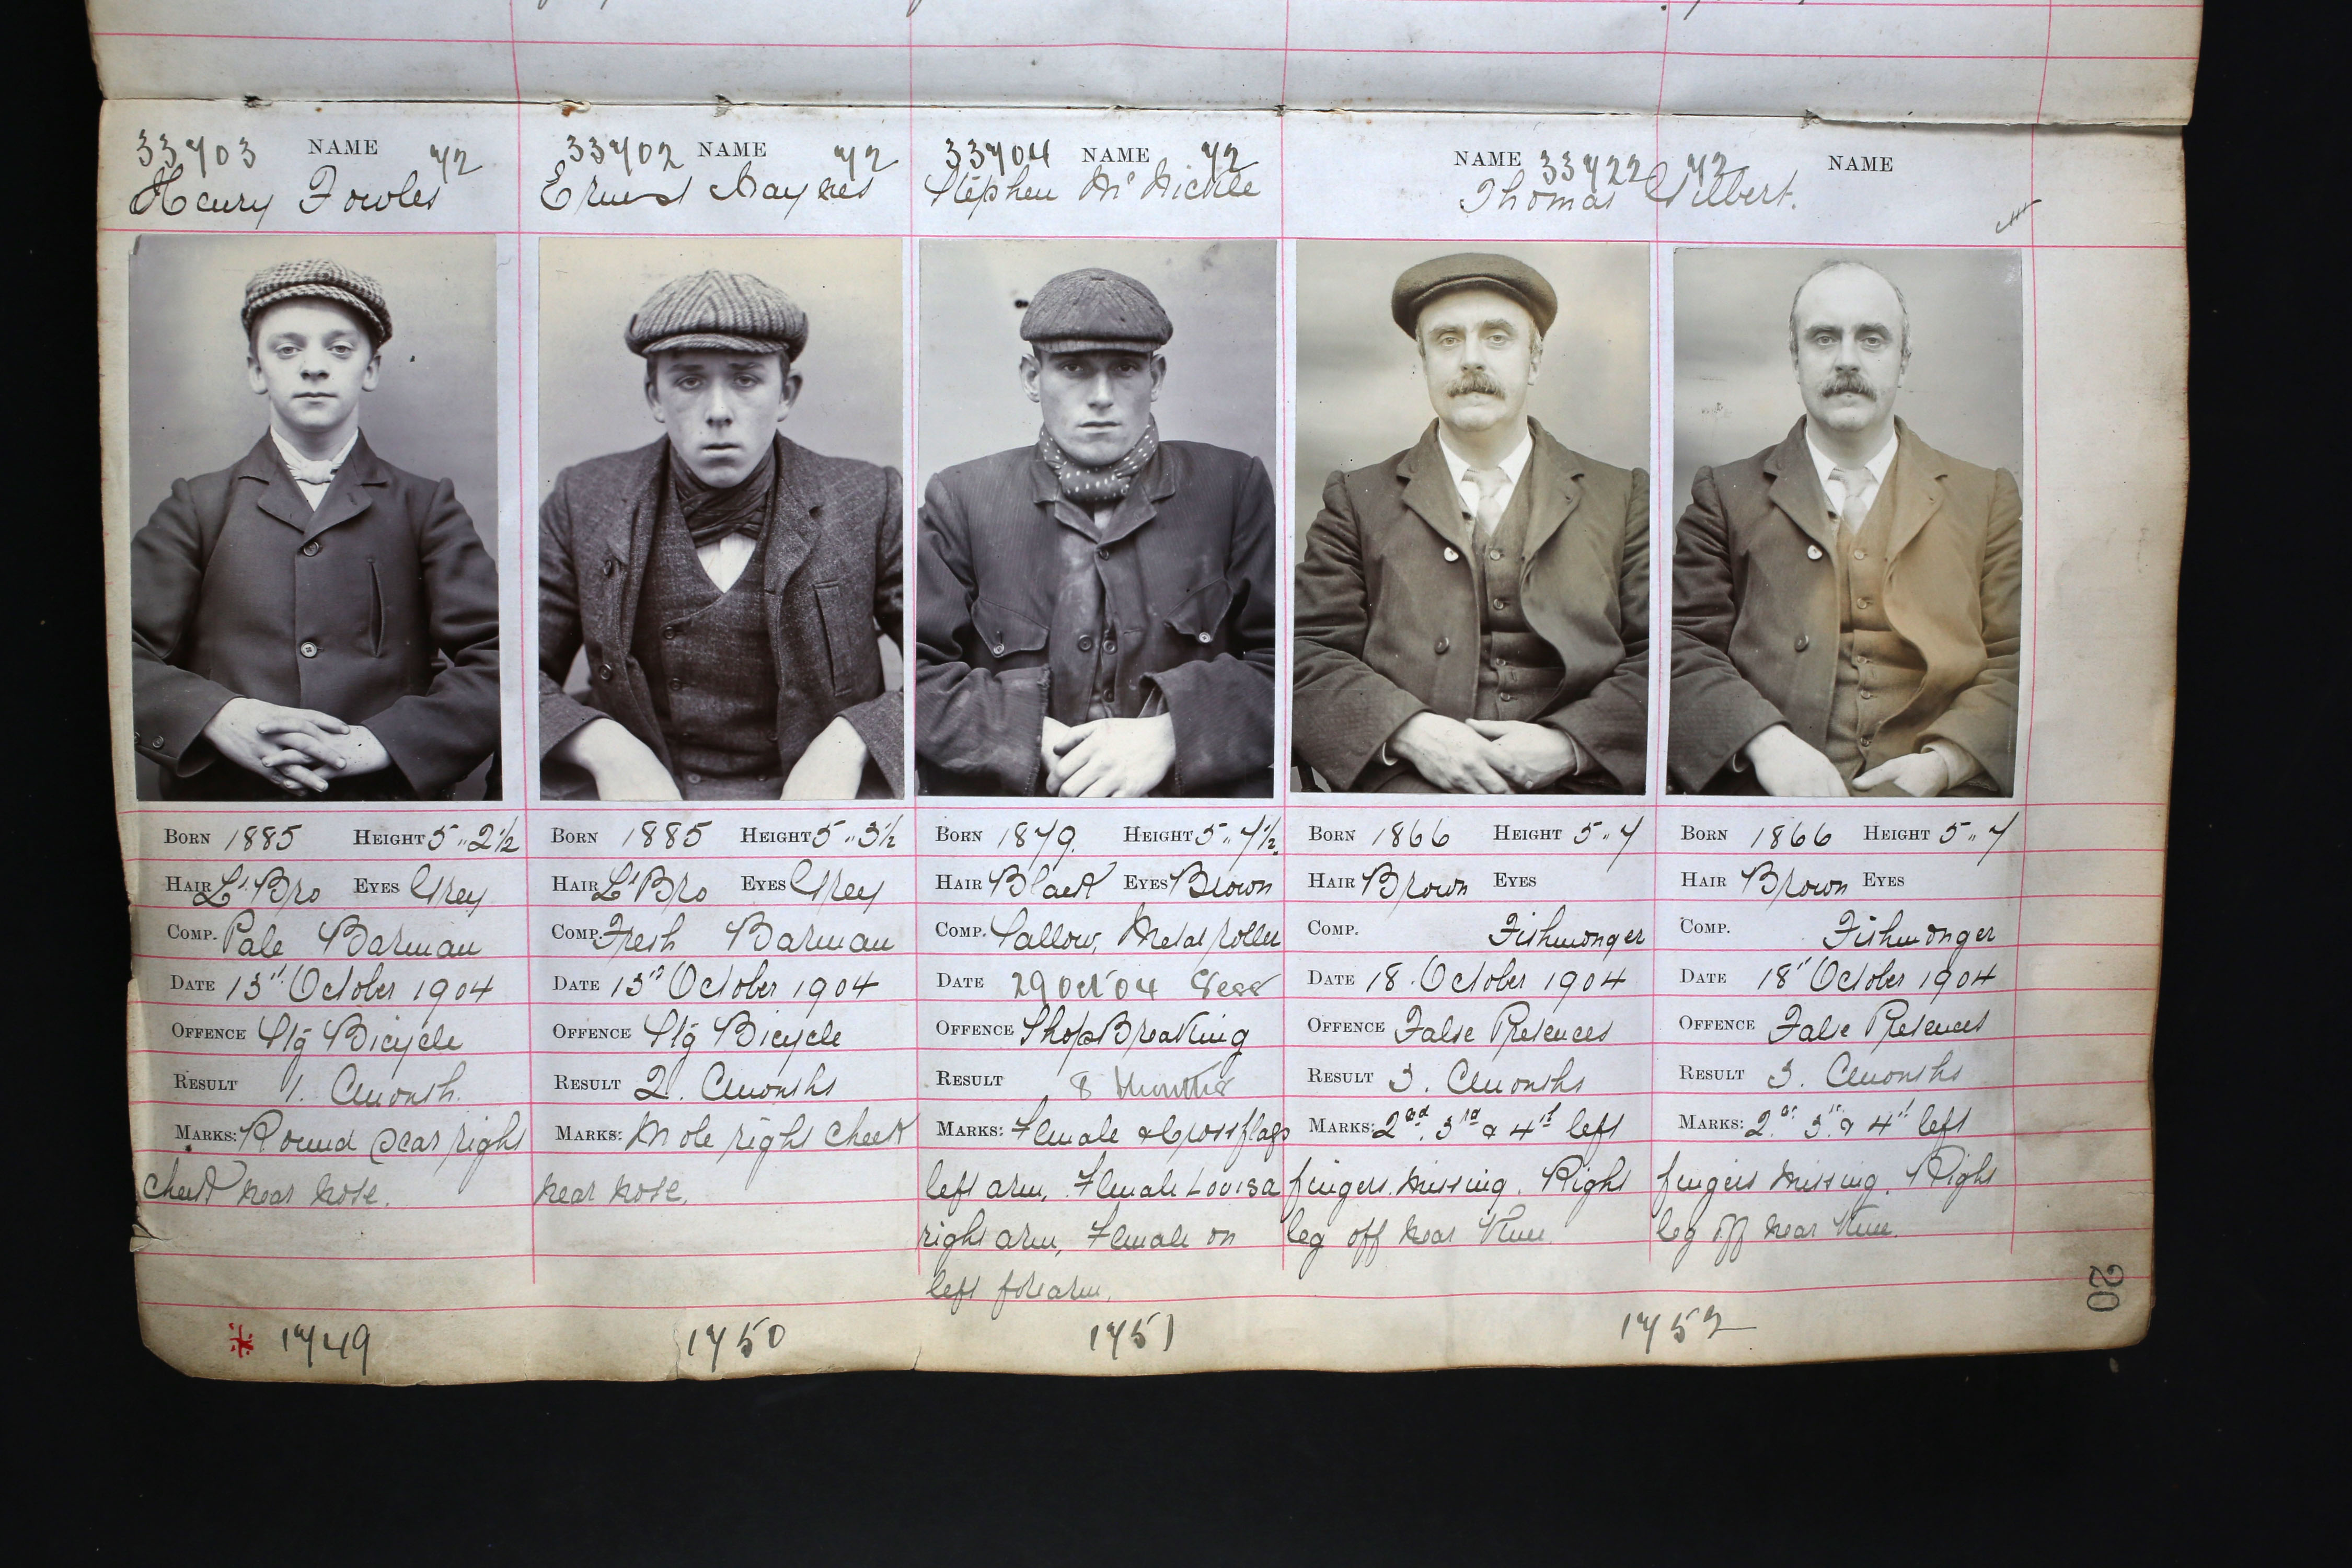 33703 NAME 72
Henry Fowles
Born 1885 Height 5 " 2½
Hair Lt Bro Eyes Grey
Comp. Pale Barman
Date 13th October 1904
Offence Stg Bicycle
Result 1. Cmonth.
Marks: Round Scar right
cheek near nose.
* 1749
33702 NAME 72
Ernest Haynes
Born 1885 Height 5 " 3½
Hair Lt Bro Eyes Grey
Comp. Fresh Barman
Date 13th October 1904
Offence Stg Bicycle
Result 2. Cmonths
Marks: Mole right cheek
near nose.
1750
33704 NAME 72
Stephen
Born 1879. Height 5 " 7½.
Hair Black Eyes Brown
Comp. Sallow, Metal roller
Date 29 Oct 04 Sess
Offence Shop Breaking
Result 8 months
Marks: Female & Cross flags
left arm, Female Louisa
right arm, Female on
left forearm.
1751
NAME 33722 72 NAME
Thomas Gilbert.
Born 1866 Height 5 " 7
Hair Brown Eyes
Comp. Fishmonger
Date 18. October 1904
Offence False Pretences
Result 3. Cmonths
Marks: 2nd. 3rd & 4th left
fingers missing. Right
leg off near Knee.
Born 1866 Height 5 " 7
Hair Brown Eyes
Comp. Fishmonger
Date 18th October 1904
Offence False Pretences
Result 3. Cmonths
Marks: 2nd 3rd & 4th left
fingers missing. Right
leg off near Knee.
1752
20